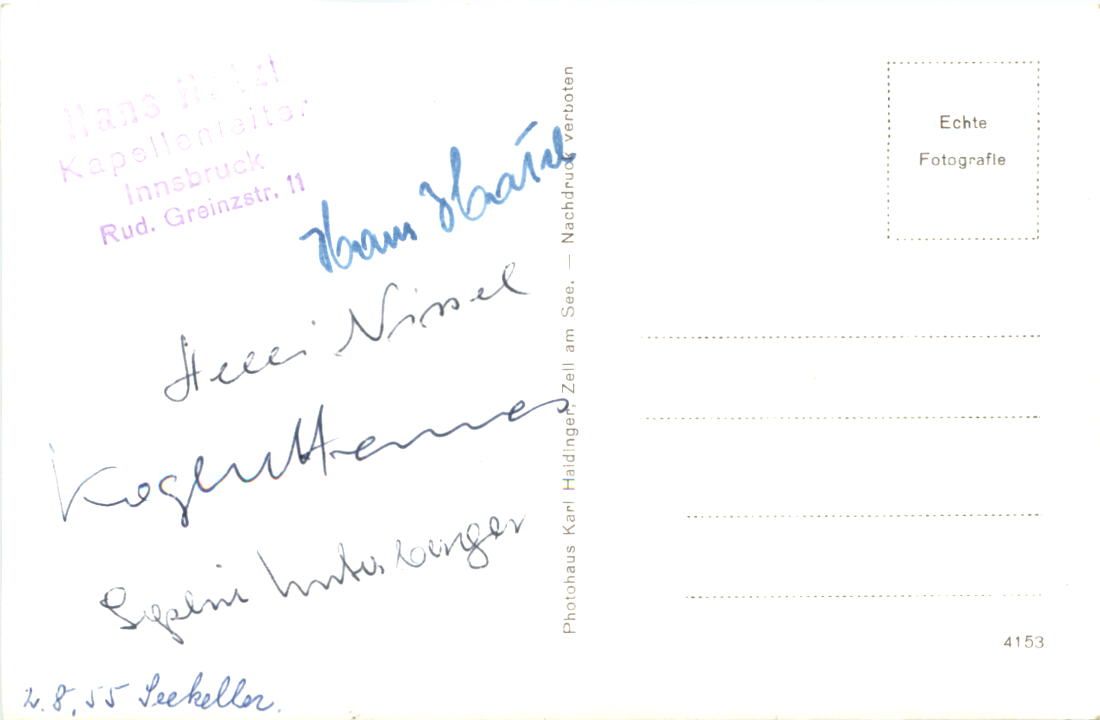 Hans
Kapellenleiter
Innsbruck
Rud. Greinzstr. 11
Hans
Helli Nissel
Kogler Hannes
Unterberger
2.8.55 Seekeller.
Photohaus Karl Haidinger, Zell am See. — Nachdruck verboten
Echte
Fotografie
4153